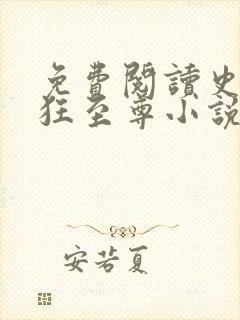 免費閱讀史
狂至尊小說
安若夏